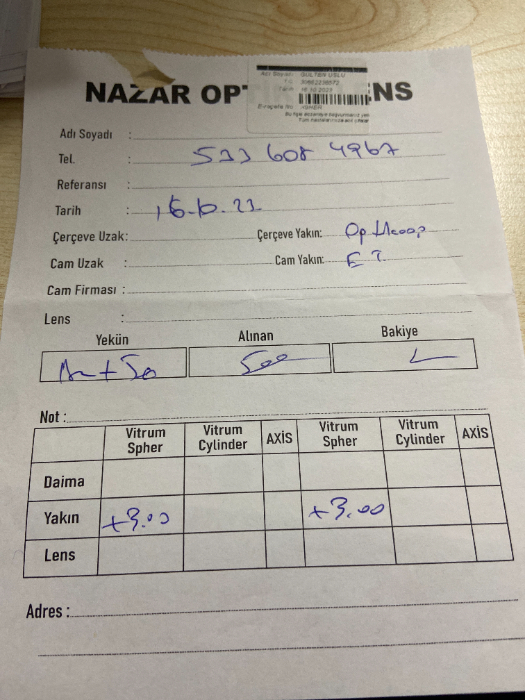 NAZAR OP NS
Adı Soyadı :
Tel. : 533 608 4967
Referansı :
Tarih :
Çerçeve Uzak: Çerçeve Yakın:
Cam Uzak : Cam Yakın:
Cam Firması :
Lens :
Yekün Alınan Bakiye
500
Not :
Vitrum Spher Vitrum Cylinder AXİS Vitrum Spher Vitrum Cylinder AXİS
Daima
Yakın +3.00 +3.00
Lens
Adres :